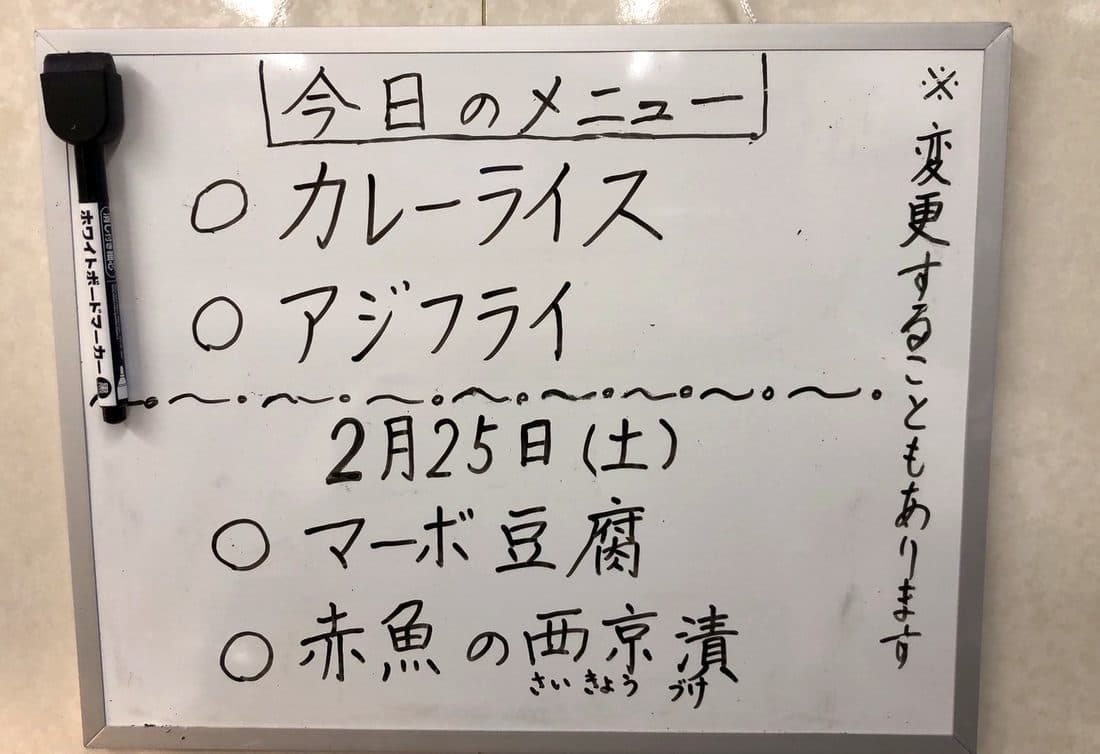 今日のメニュー
○ カレーライス
○ アジフライ
2月25日(土)
○ マーボ豆腐
○ 赤魚の西京漬
さいきょうづけ
※変更することもあります
ホワイトボードマーカー